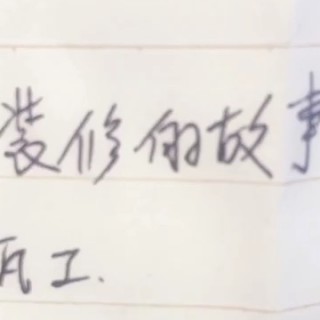 装修的故事
瓦工.